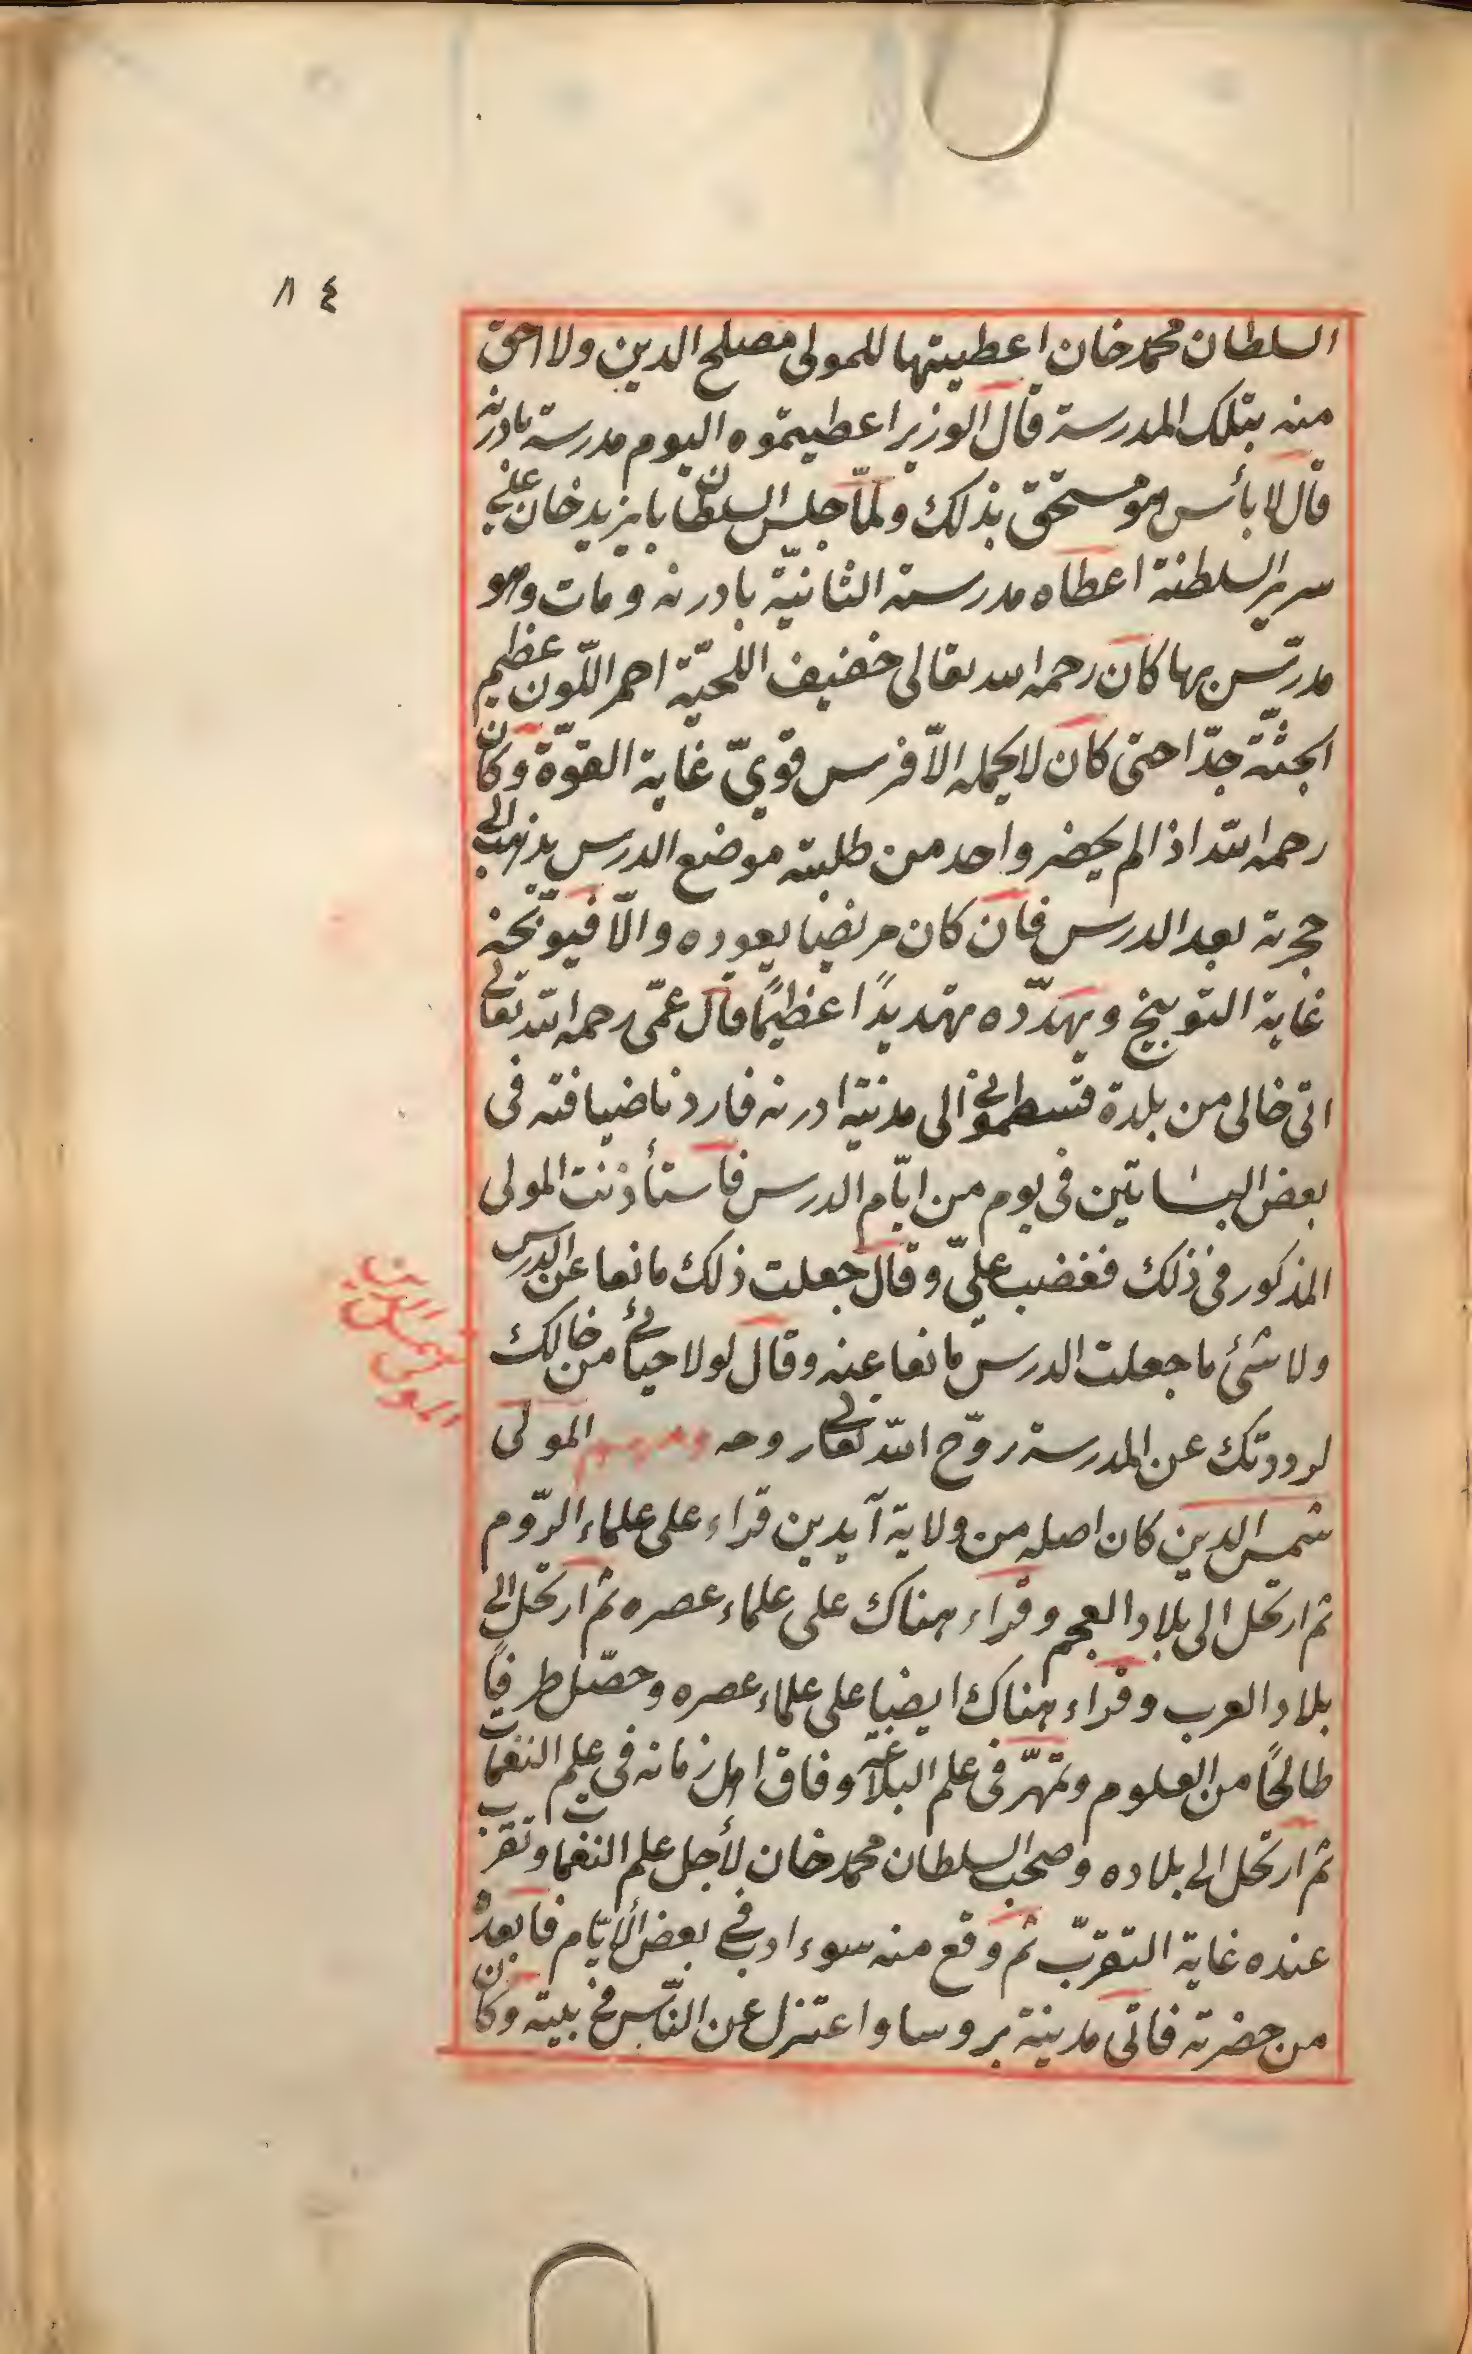 ٨٤
السلطان محمد خان اعطيتها للمولى مصلح الدين ولا احق
منه بتلك المدرسة قال الوزير اعطيتموه اليوم مدرسة بادرنه
قال لا بأس هو مستحق بذلك ولمّا جلس السلطان بايزيد خان على
سرير السلطنة اعطاه مدرسة الثانيّة بادرنه ومات وهو
مدرّس بها كان رحمه الله تعالى خفيف اللّحيّة احمر اللّون عظيم
الجثّة جدّا حتى كان لا يحمله الاّ فرس قويّ غاية القوّة وكان
رحمه الله اذا لم يحضر واحد من طلبته موضع الدرس يذهب الى
حجرته بعد الدرس فان كان مريضا يعوده والّا فيوبّخه
غاية التوبيخ ويهدّده تهديدًا عظيمًا قال عمّى رحمه الله تعالى
اتى خالى من بلدة قسطمونى الى مدينة ادرنه فاردنا ضيافته فى
بعض البساتين فى يوم من ايّام الدرس فاستأذنت المولى
المذكور فى ذلك فغضب علىّ وقال جعلت ذلك مانعا عن الدرس
ولاشئ ما جعلت الدرس مانعا عنه وقال لولا حيائى من خالك
لرددتك عن المدرسة روّح الله تعالى روحه ومنهم المولى
شمس الدين كان اصله من ولاية آيدين قراء على علماء الرّوم
ثم ارتحل الى بلاد العجم وقراء هناك على علماء عصره ثم ارتحل الى
بلاد العرب وقراء هناك ايضا على علماء عصره وحصّل طرفاً
صالحًا من العلوم وتمهّر فى علم البلاغة وفاق اهل زمانه فى علم النغمات
ثم ارتحل الى بلاده وصحب السلطان محمد خان لأجل علم النغمات وتقرب
عنده غاية التقرّب ثم وقع منه سوء ادب فى بعض الأيّام فابعده
من حضرته فاتى مدينة بروسا واعتزل عن النّاس فى بيته وكان
المولى شمس الدين